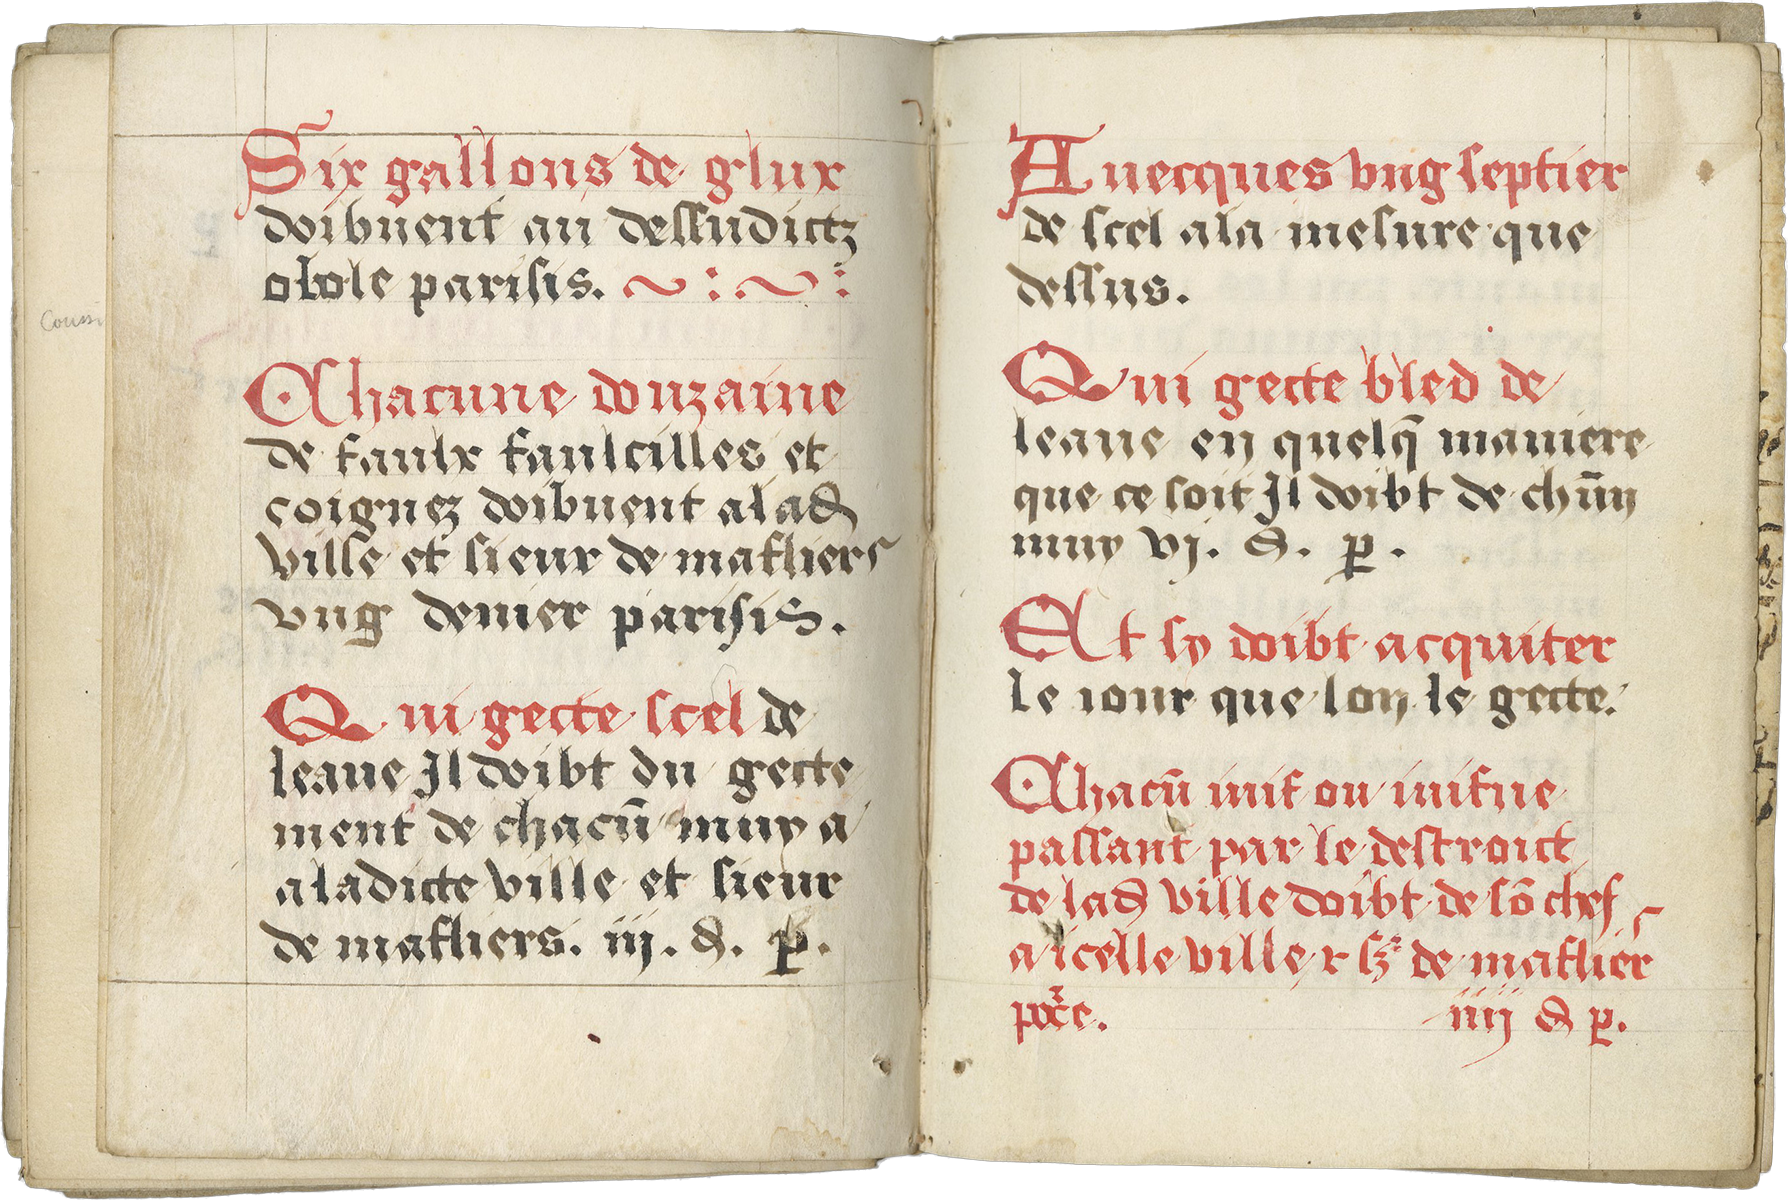 Six gallons de glux
doibuent au dessudictz
obole parisis.
Chacune douzaine
de faulx faulcilles et
coignez doibuent a lad
ville et sieur de mafliers
vng denier parisis.
Qui gecte scel de
leaue Il doibt du gecte
ment de chacū muy a
aladicte ville et sieur
de mafliers. iij. d. p.
Auecques vng septier
de scel ala mesure que
dessus.
Qui gecte bled de
leaue en quelq̄ maniere
que ce soit Il doibt de chūn
muy vj. d. p.
Et sy doibt acquiter
le iour que lon le gecte.
Chacū iuif ou iuifue
passant par le destroict
de lad ville doibt de sō chef
a icelle ville r sr de mafliers
iiij d p.